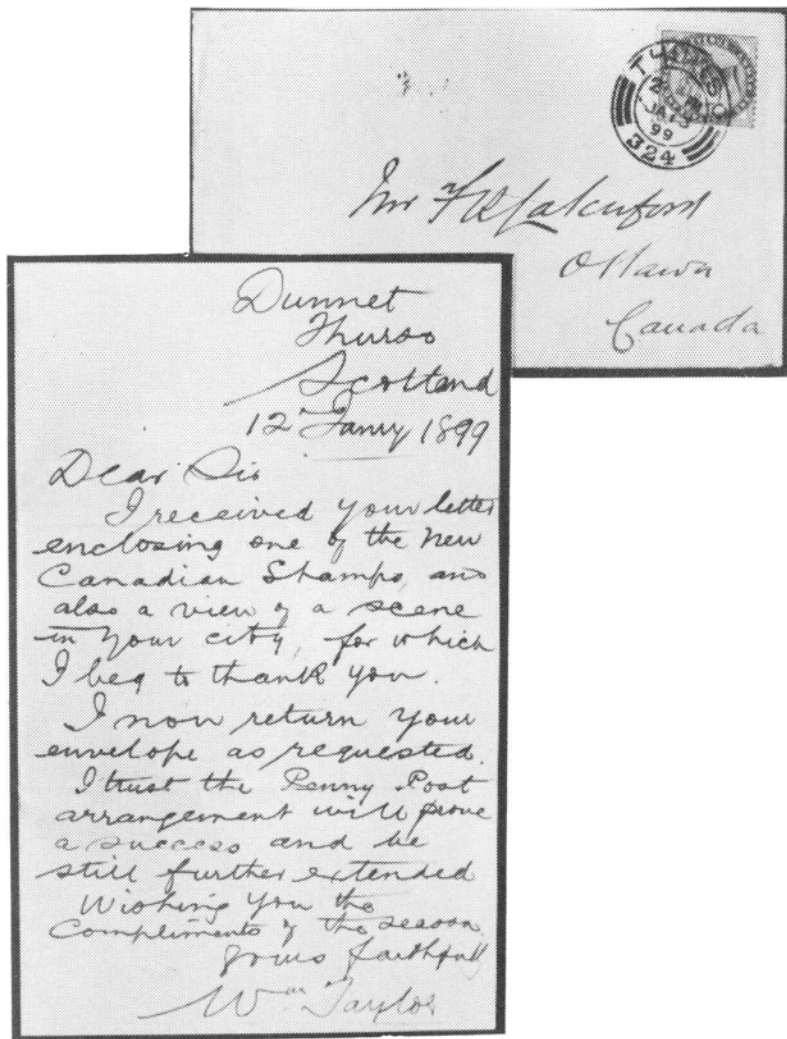 THURSO
JA 13
99
324
Mr F R Latchford
Ottawa
Canada
Dunnet
Thurso
Scotland
12 Janry 1899
Dear Sir
I received your letter
enclosing one of the new
Canadian Stamps, and
also a view of a scene
in your city, for which
I beg to thank you.
I now return your
envelope as requested.
I trust the Penny Post
arrangement will prove
a success and be
still further extended
Wishing you the
Compliments of the season
yours faithfully
Wm Taylor